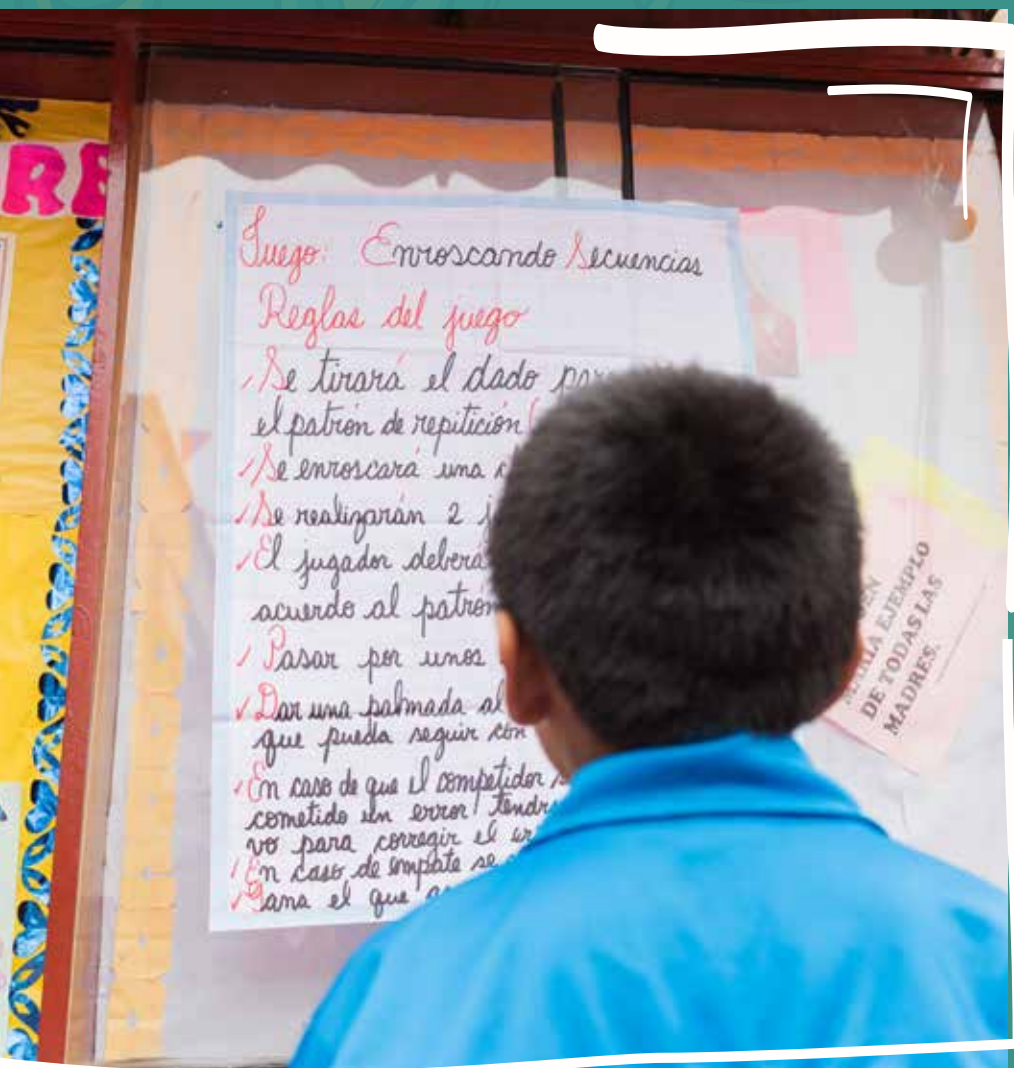 RE
Juego: Enroscando Secuencias
Reglas del juego
Se tirará el dado
el patrón de repitición
Se enroscará una
Se realizarán 2
El jugador deberá
acuerdo al patrón
Pasar por unos
Dar una palmada al
que pueda seguir con
En caso de que el competidor
cometido un error
vo para corregir el
En caso de empate se
Gana el que
EJEMPLO
DE TODAS LAS
MADRES.